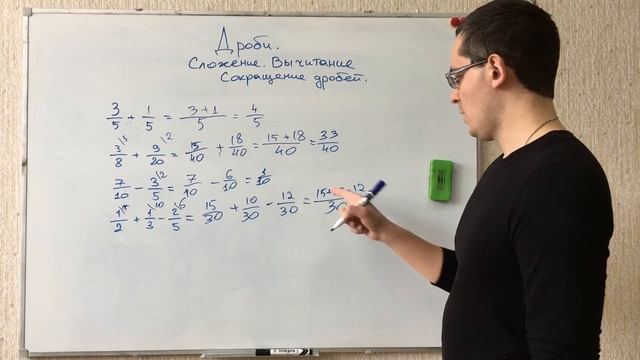 Дроби.
Сложение. Вычитание
Сокращение дробей.
3/5 + 1/5 = 3+1/5 = 4/5
3/8 \5 + 9/20 \2 = 15/40 + 18/40 = 15+18/40 = 33/40
7/10 - 3/5 \2 = 7/10 - 6/10 = 1/10
1/2 \15 + 1/3 \10 - 2/5 \6 = 15/30 + 10/30 - 12/30 = 15+ 12/30